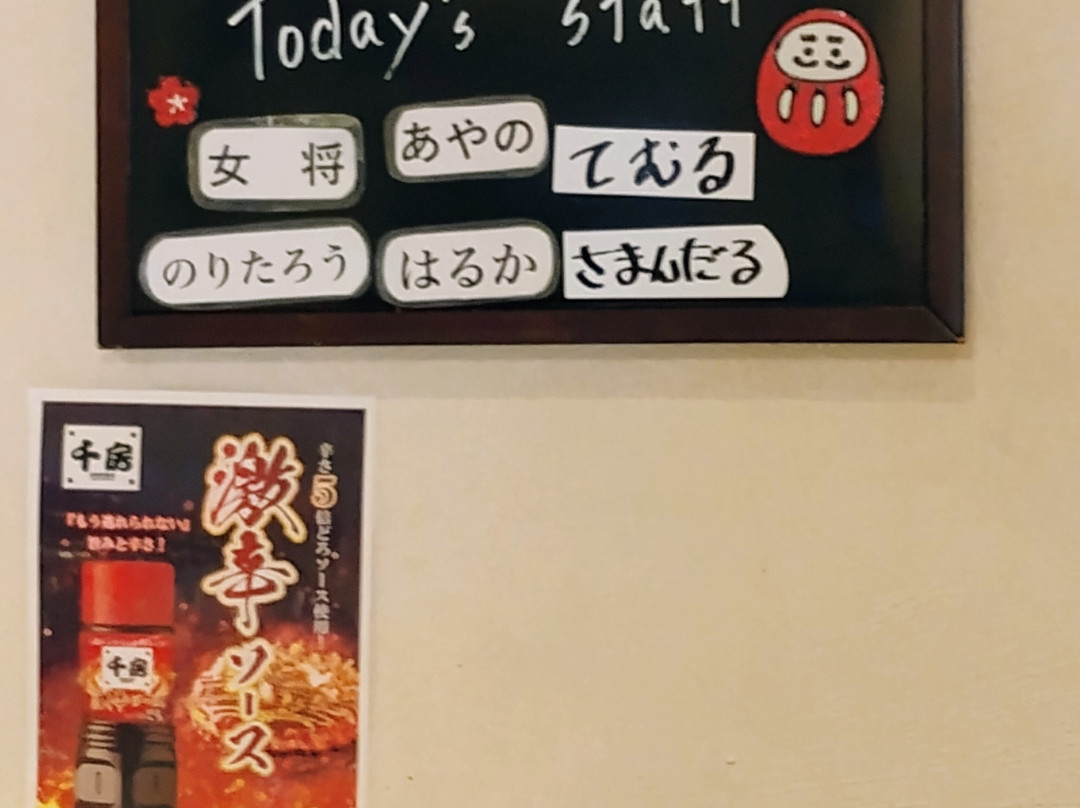 Today's staff
女将 あやの てむる
のりたろう はるか さまんだる
千房
辛さ5倍どろソース使用!
激辛ソース
『もう逃れられない』
旨みと辛さ!
千房